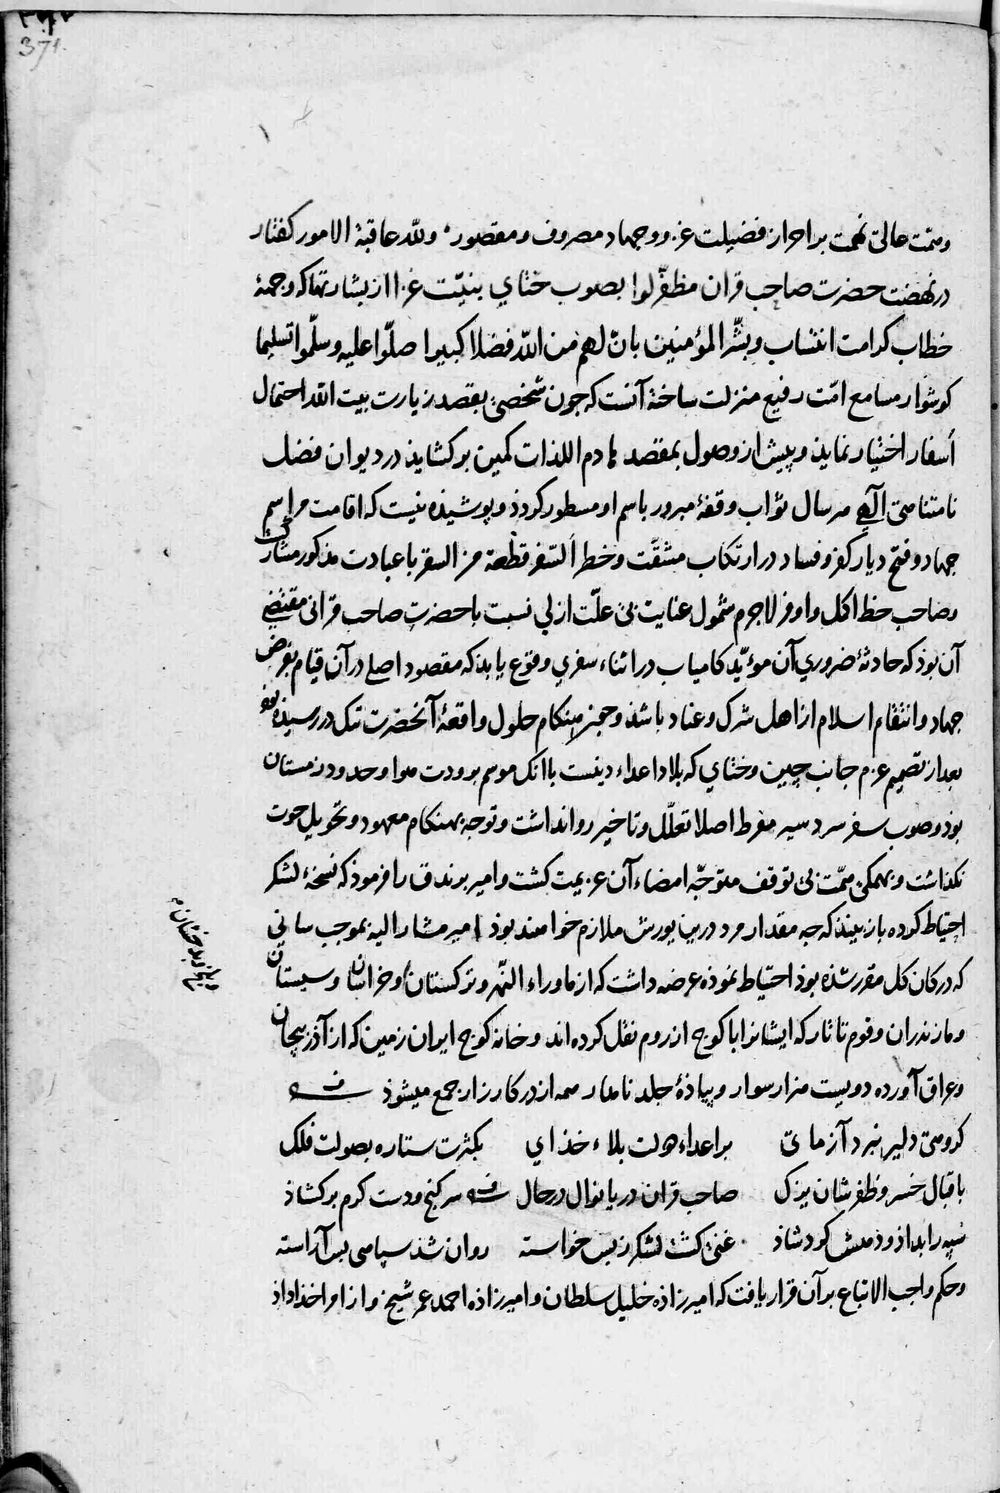 371
وهمت عالی نهمت بر احراز فضیلت غزو و جهاد مصروف و مقصور ولله عاقبة الامور کفتار
در نهضت حضرت صاحب قران مظفّر لوا بصوب ختای بنیّت غزا از بشارتها که وجهۀ
خطاب کرامت انتساب وبشّر المؤمنین بانّ لهم من الله فضلا کبیرا صلّوا علیه وسلّموا تسلیما
کوشوار مسامع امّت رفیع منزلت ساخته آنست که جون شخصی بقصد زیارت بیت الله احتمال
أسفار اختیار نماید و پیش از وصول بمقصد هادم اللذات کمین بر کشاید در دیوان فضل
نامتناهی آلهی هر سال ثواب وقفۀ مبرور باسم او مسطور کردد و پوشیده نیست که اقامت مراسم
جهاد و فتح دیار کفر و فساد در ارتکاب مشقّت وخطر السّفر قطعة من السقر با عبادت مذکور مشارک
وصاحب حظ اکمل و اوفر لاجرم شمول عنایت بی علّت ازلی نسبت با حضرت صاحب قرانی مقتضی
آن بود که حادثۀ ضروری آن مؤیّد کامیاب در اثناء سفری وقوع یابد که مقصود اصلی در آن قیام بفرض
جهاد و انتقام اسلام از اهل شرک و عناد باشد وجون هنکام حلول واقعۀ آنحضرت تنک در رسیده بود
بعد از تصمیم عزم جانب چین وختای که بلاد اعداء دینست با انک موسم برودت هوا وحدود زمستان
بود وصوب سفر سرد سیر مفرط اصلا تعلّل و تاخیر روا نداشت و توجه بهنکام معهود وتحویل حوت
نکذاشت و بهمکی همّت بی توقف متوجّه امضاء آن عزیمت کشت و امیر برندق را فرمود که نسخۀ لشکر
احتیاط کرده باز بیند که جه مقدار مرد درین یورش ملازم خواهند بود امیر مشار الیه بموجب سانی
که در کان کل مقرر شده بود احتیاط نموده عرضه داشت که از ماوراء النّهر و ترکستان و خراسان وسیستان
بلخ و بدخشان
و مازندران وقوم تاتار که ایشانرا با کوج از روم نقل کرده اند و خانه کوج ایران زمین که از آذربیجان
وعراق آورده دویست هزار سوار و پیادۀ جلد نامدار همه از در کارزار جمع میشود
کروهی دلیر نبرد آزمای بر اعداء دولت بلاء خدای بکثرت ستاره بصولت فلک
باقبال خسرو ظفرشان یزک صاحب قران دریا نوال در حال سر کنج و دست کرم بر کشاد
سپه را بداد و دهش کرد شاد غنی کشت لشکر زبس خواسته روان شد سپاهی بس آراسته
وحکم واجب الاتباع بر آن قرار یافت که امیرزاده خلیل سلطان و امیرزاده احمد عمر شیخ و از امرا خداداد